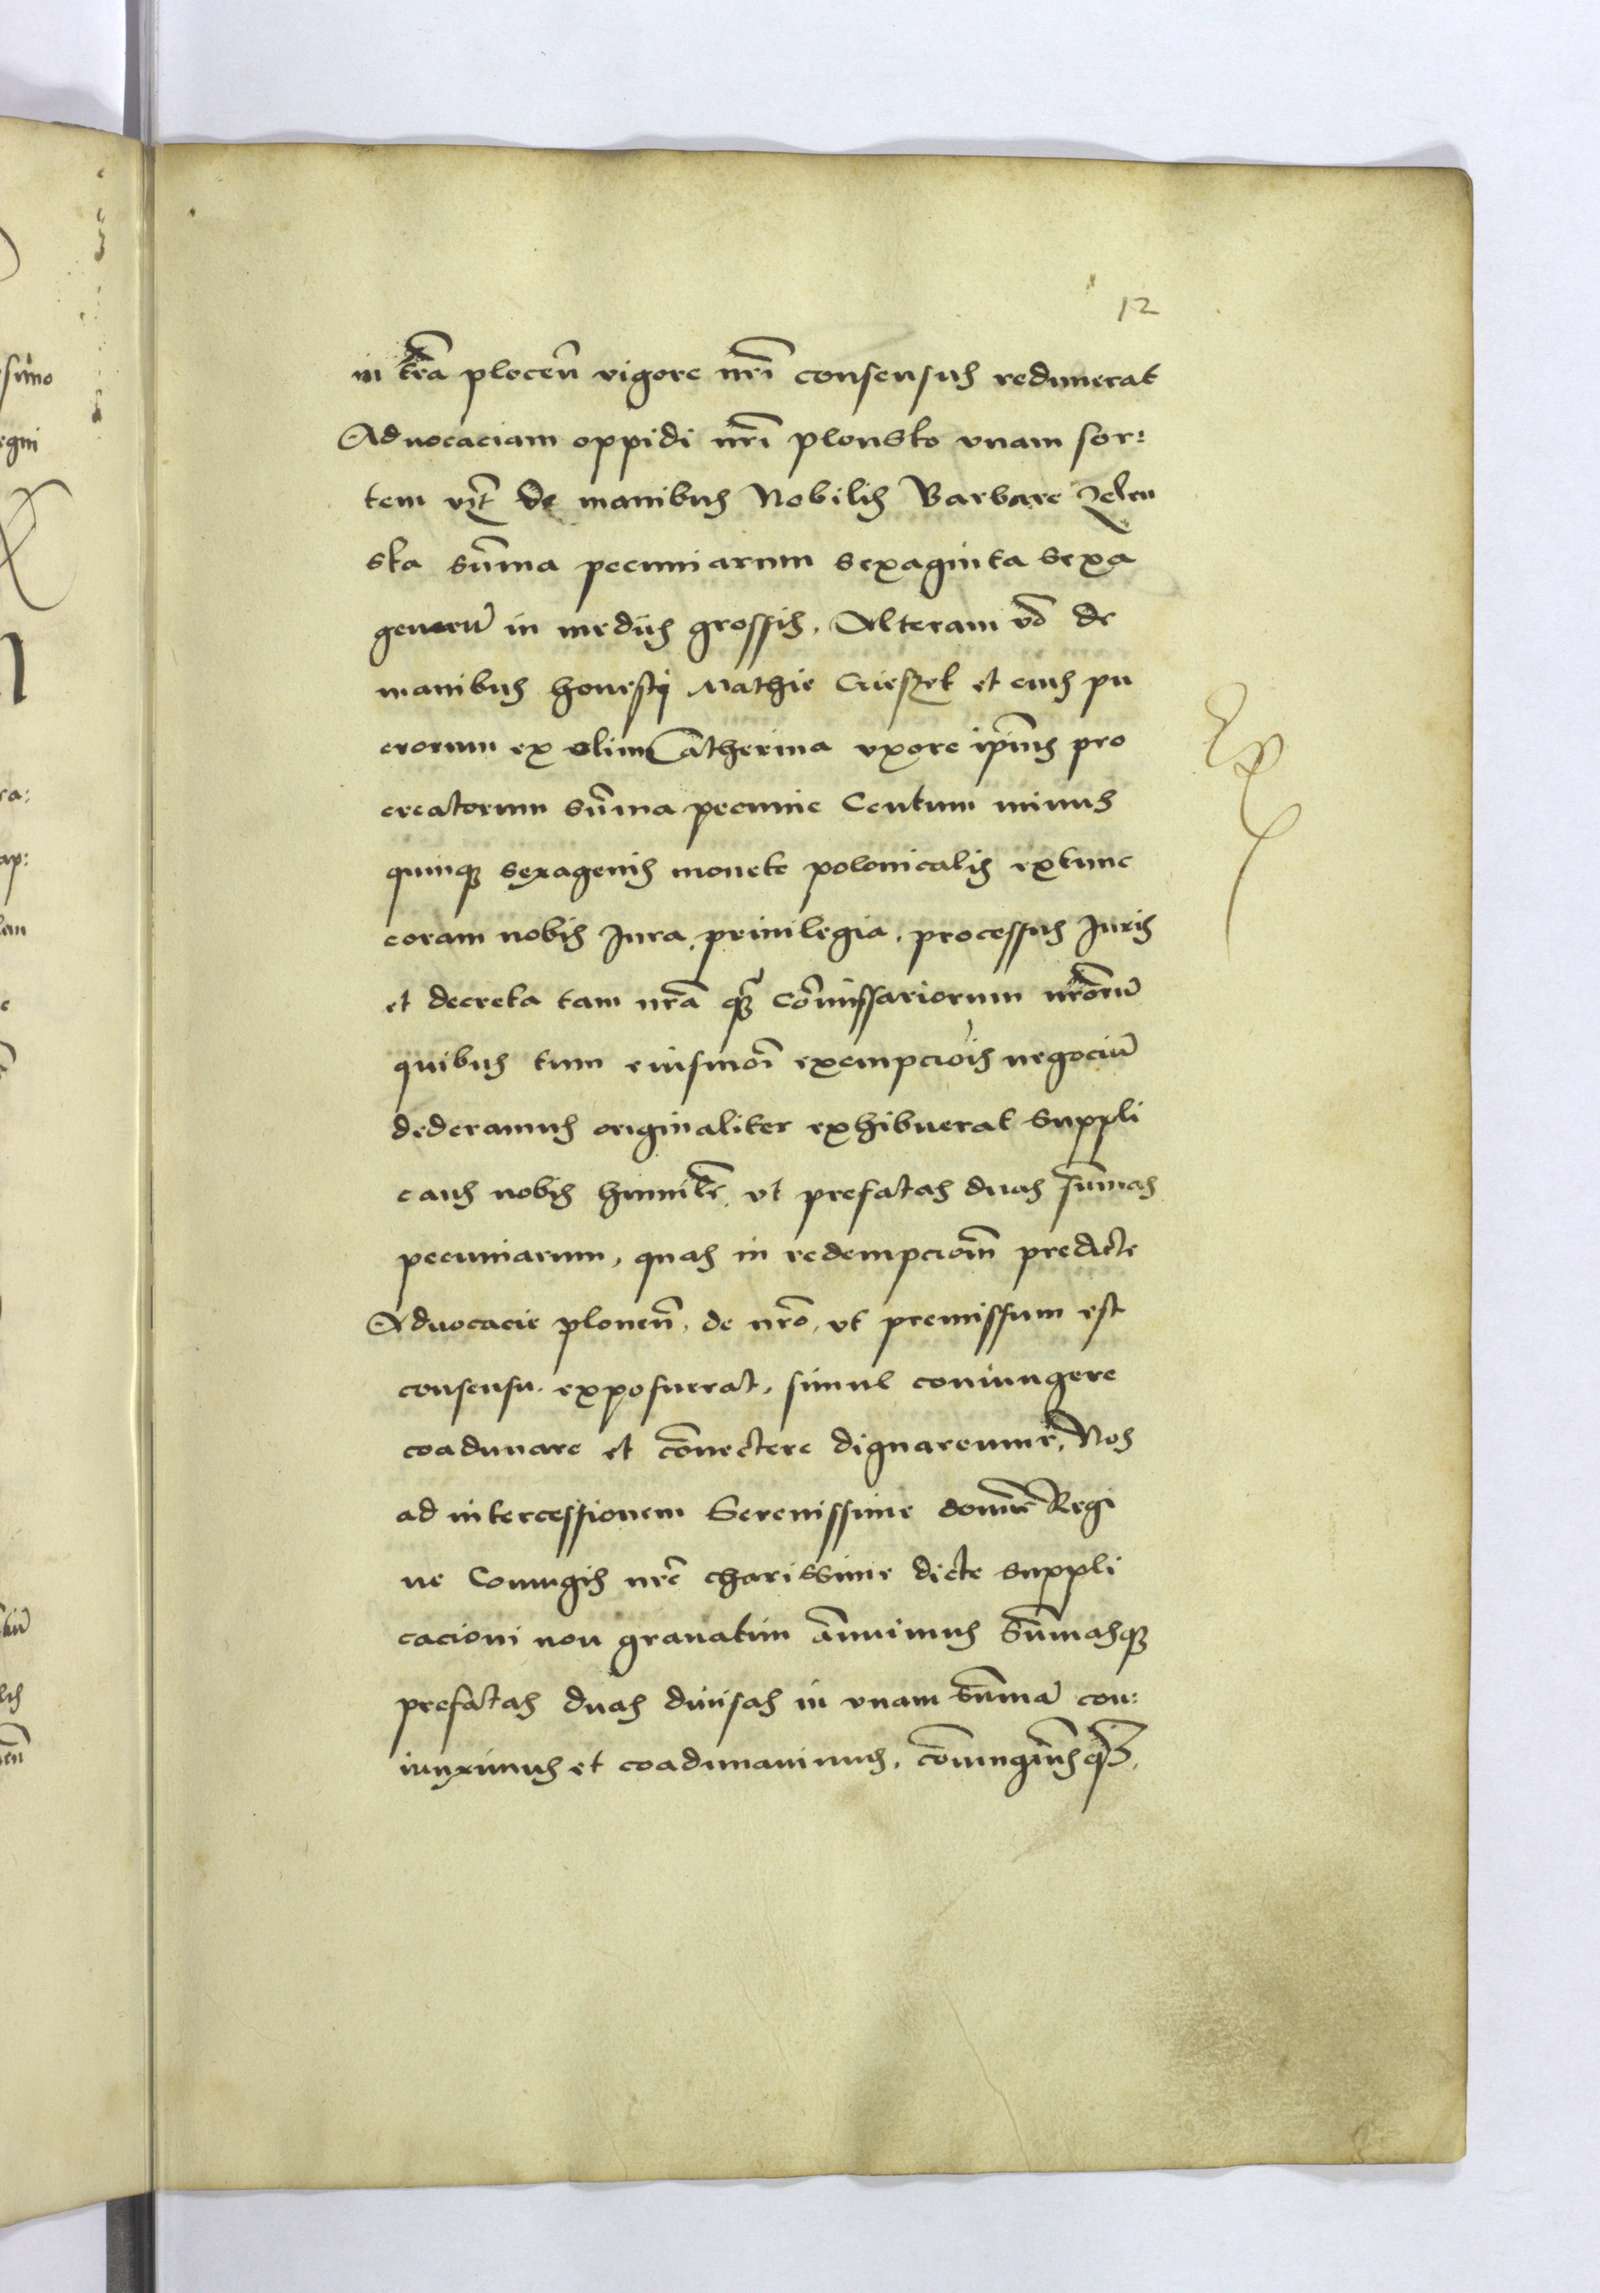 12
in tr̄a plocen̄ vigore nr̄i consensus redimerat
Aduocaciam oppidi nr̄i plonsko vnam sor:
tem vꝫt de manibus Nobilis Barbare Zelen
ska sum̄a pecuniarum sexaginta sexa
generū in medijs grossis. Alteram vō de
manibus honesti Mathie Cieszek et eius pu
erorum ex olim Catherina vxore ip̄ius pro
creatorum sum̄a pecunie Centum minus
quinqꝫ sexagenis monete polonicalis extunc
coram nobis Jura, priuilegia, processus Juris
et decreta tam nr̄a qꝫ Com̄issariorum nr̄orū
quibus tum eiusmōi exempcōis negociū
dederamus originaliter exhibuerat suppli
cans nobis humilr̄ vt prefatas duas sum̄as
pecuniarum, quas in redempciōm predicte
Aduocacie plonen̄, de nr̄o, vt premissum est
consensu, exposuerat, simul coniungere
coadunare et con̄ectere dignaremur, Nos
ad intercessionem Serenissime domīe Regi
ne Coniugis nr̄e charissime dicte suppli
cacioni non grauatim an̄uimus Sum̄asqꝫ
prefatas duas diuisas in vnam sum̄ā con:
iunximus et coadunauimus, coniungimusqꝫ